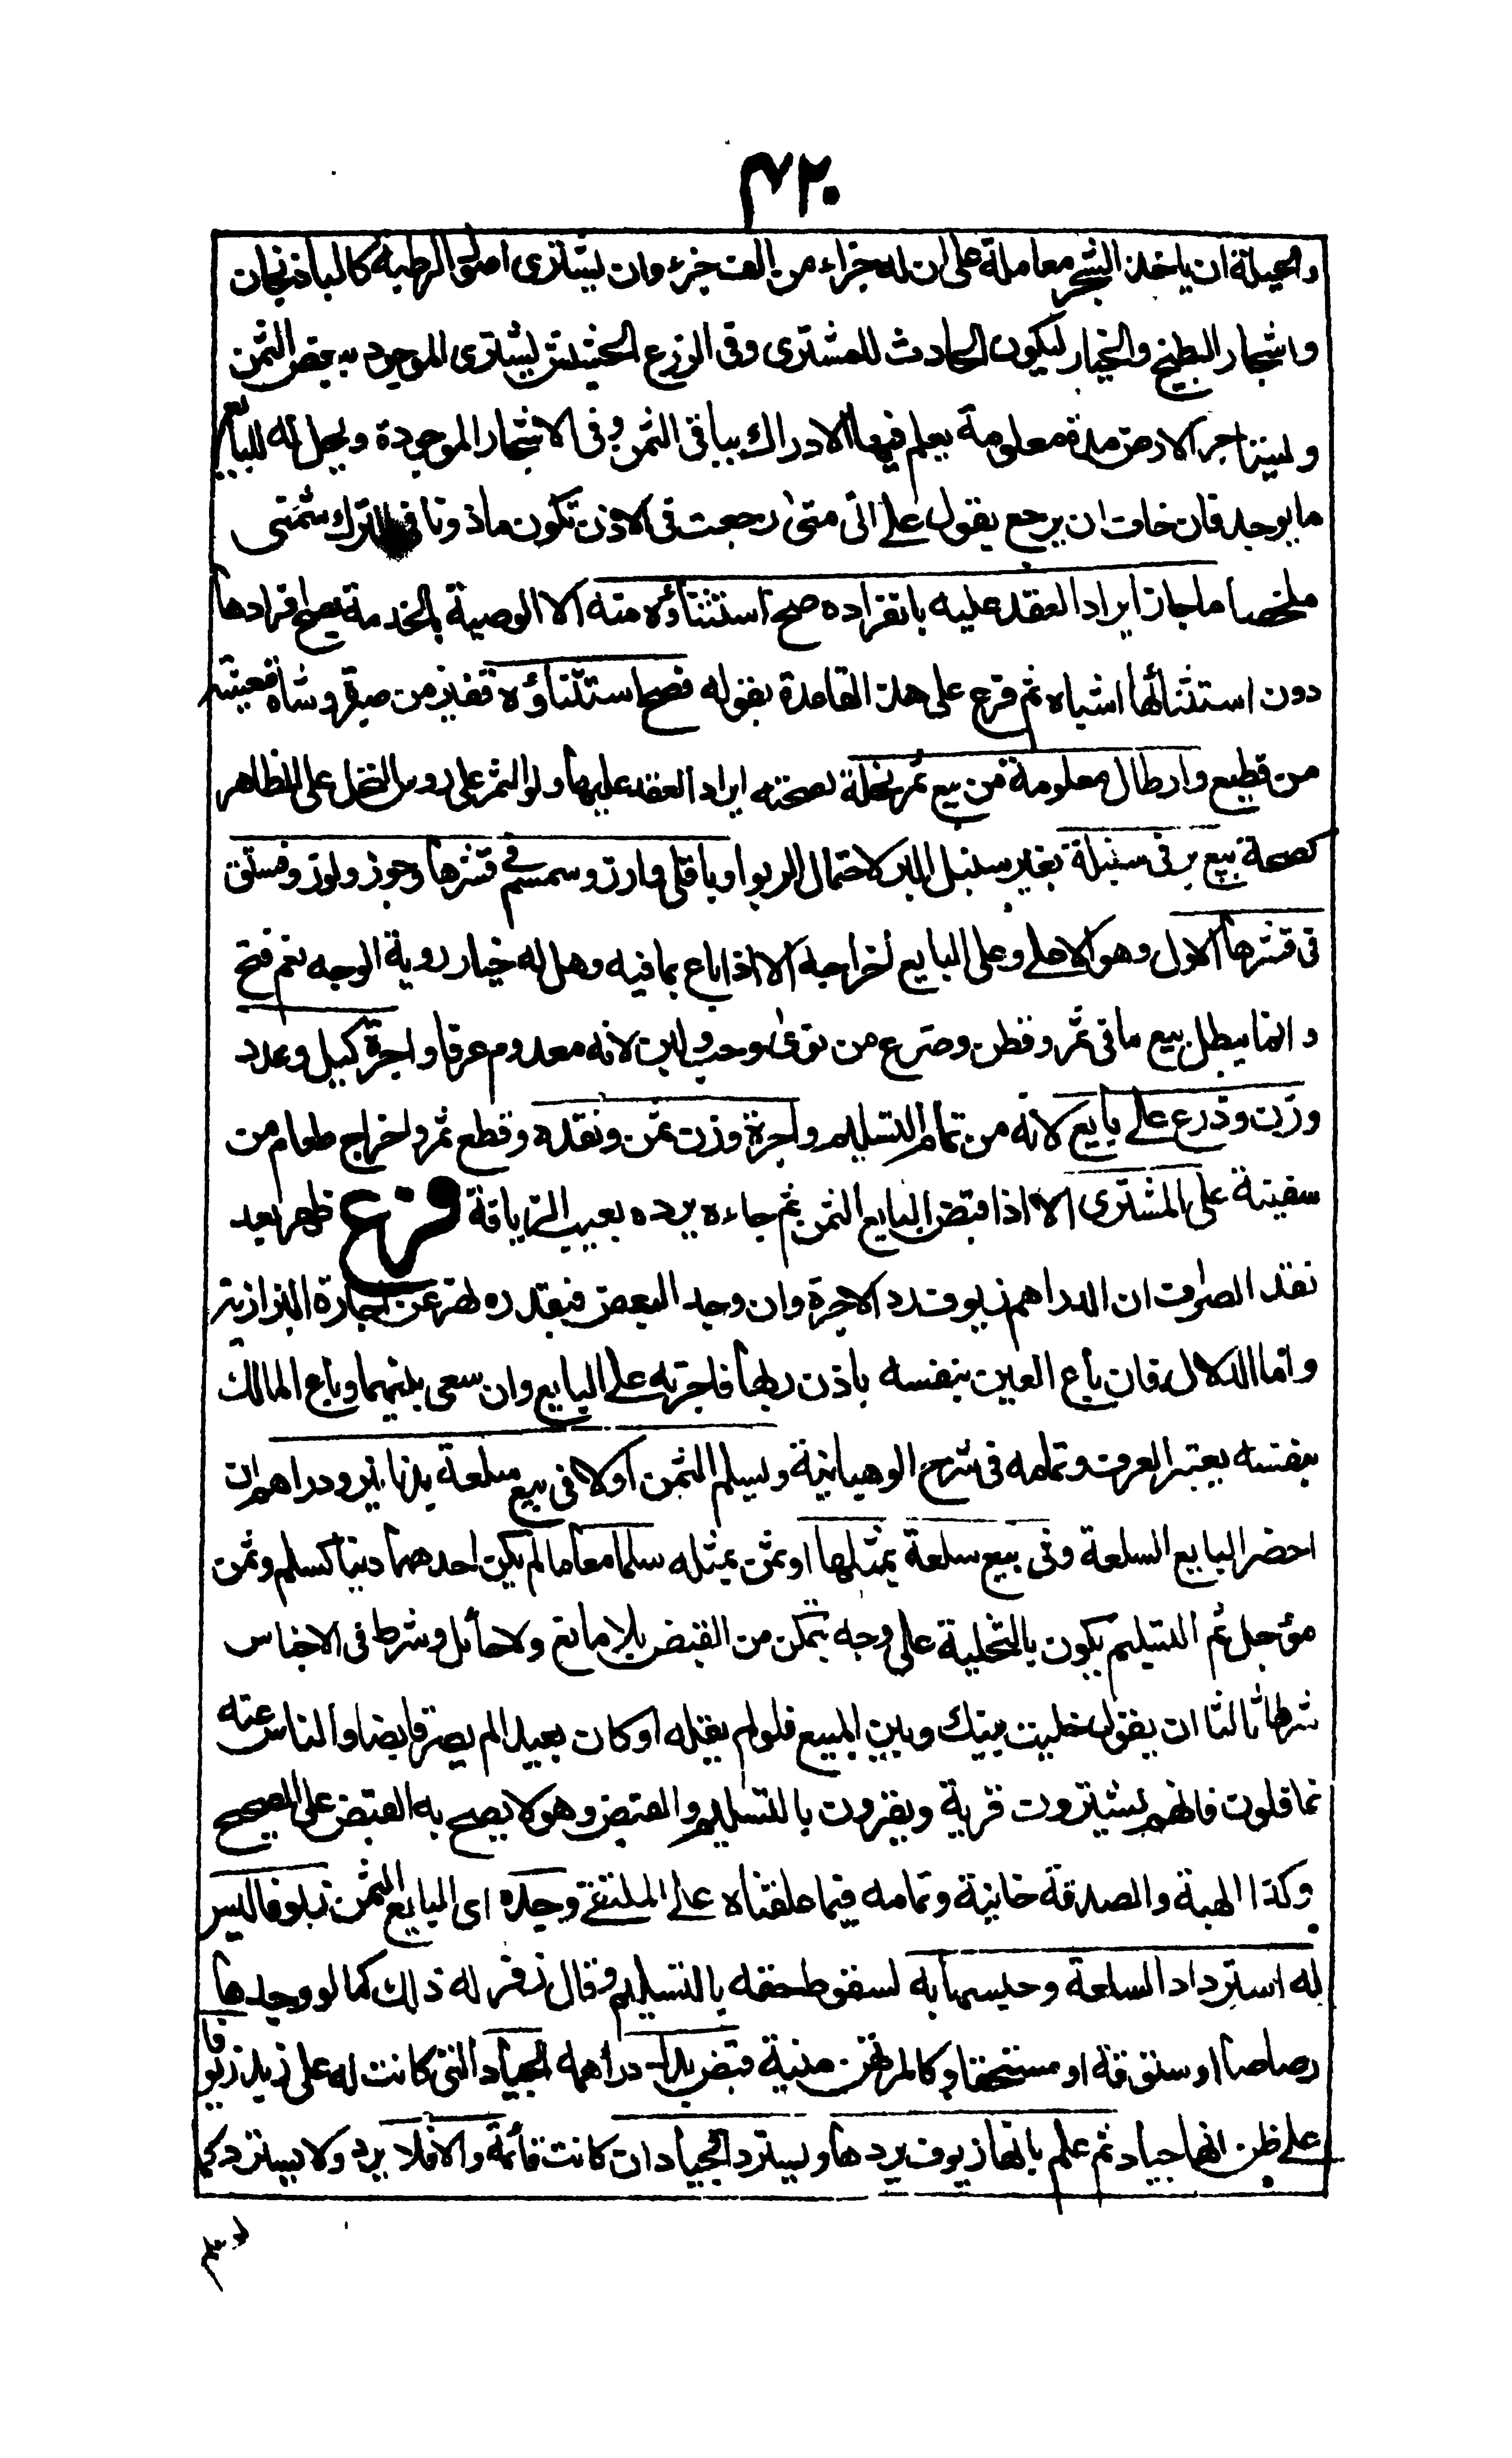 ٤٢٠
والحيلة ان ياخذ الشجر معاملة على ان له جزاء من الف جزء وان يشترى اصول الرطبة كالباذنجان
واشجار البطيخ والخيار ليكون الحادث للمشترى وفى الزرع الحشيش يشترى الموجود ببعض الثمن
ويستاجر الارض مدة معلومة يعلم فيها الادراك بباقى الثمن وفى الاشجار الموجودة ويحل له البايع
ما يوجد فان خاف ان يرجع يقول على انى متى رجعت فى الاذن تكون ماذونا فى الترك شمنى
ملخصا ما جاز ايراد العقد عليه بانفراده صح استثناؤه منه الا الوصية بالخدمة يصح افرادها
دون استثنائها اشباه ثم فرع على هذه القاعدة بقوله فصح استثناؤه قفيز من صبرة وشاة معينة
من قطيع وارطال معلومة من بيع ثمر نخلة لصحته ايراد العقد عليها ولو الثمر على روس النخل على الظاهر
كصحة بيع بر فى سنبلة بغير سنبل البر لاحتمال الربوا وباقلى وارز وسمسم فى قشرها وجوز ولوز وفستق
فى قشرها الاول وهو الاعلى وعلى البايع اخراجه الا اذا باع بما فيه وهل له خيار روية الوجه نعم فتح
وانما يبطل بيع ما فى ثمر وقطن وضرع من نوى وحب ولبن لانه معدوم عرفا واجرة كيل وعدد
وزن وذرع على بايع لانه من تمام التسليم واجرة وزن ثمن ونقده وقطع ثمر واخراج طعام من
سفينة على المشترى الا اذا قبض البايع الثمن ثم جاءه يرده بعيب الزيافة فرع ظهر بعد
نقد الصراف ان الدراهم زيوف رد الاجرة وان وجد البعض فبقدره نهر عن اجارة البزازية
واما الدلال فان باع العين بنفسه باذن ربها فاجرته على البايع وان سعى بينهما وباع المالك
بنفسه يعتبر العرف وتمامه فى شرح الوهبانية ويسلم الثمن اولا فى بيع سلعة بدنانير ودراهم ان
احضر البايع السلعة وفى بيع سلعة بمثلها او ثمن بمثله سلما معا ما لم يكن احدهما دينا كسلم وثمن
مؤجل ثم التسليم يكون بالتخلية على وجه يتمكن من القبض بلا مانع ولا حائل وشرط فى الاجناس
شرطا ثالثا ان يقول خليت بينك وبين المبيع فلو لم يقله او كان بعيدا لم يصر قابضا والناس عنه
غافلون فانهم يشترون قرية ويقرون بالتسليم والقبض وهو لا يصح به القبض على الصحيح
وكذا الهبة والصدقة خانية وتمامه فيما علقناه على الملتقى وجده اى البايع الثمن زيوفا ليس
له استرداد السلعة وحبسها به لسقوط حقه بالتسليم وقال زفر له ذلك كما لو وجدها
رصاصا او ستوقة او مستحقا وكالمرتهن منية قبض بدل دراهمه الجياد التى كانت له على زيد زيوفا
على ظن انها جياد ثم علم بانها زيوف يردها ويسترد الجياد ان كانت قائمة والا فلا يرد ولا يسترد كما